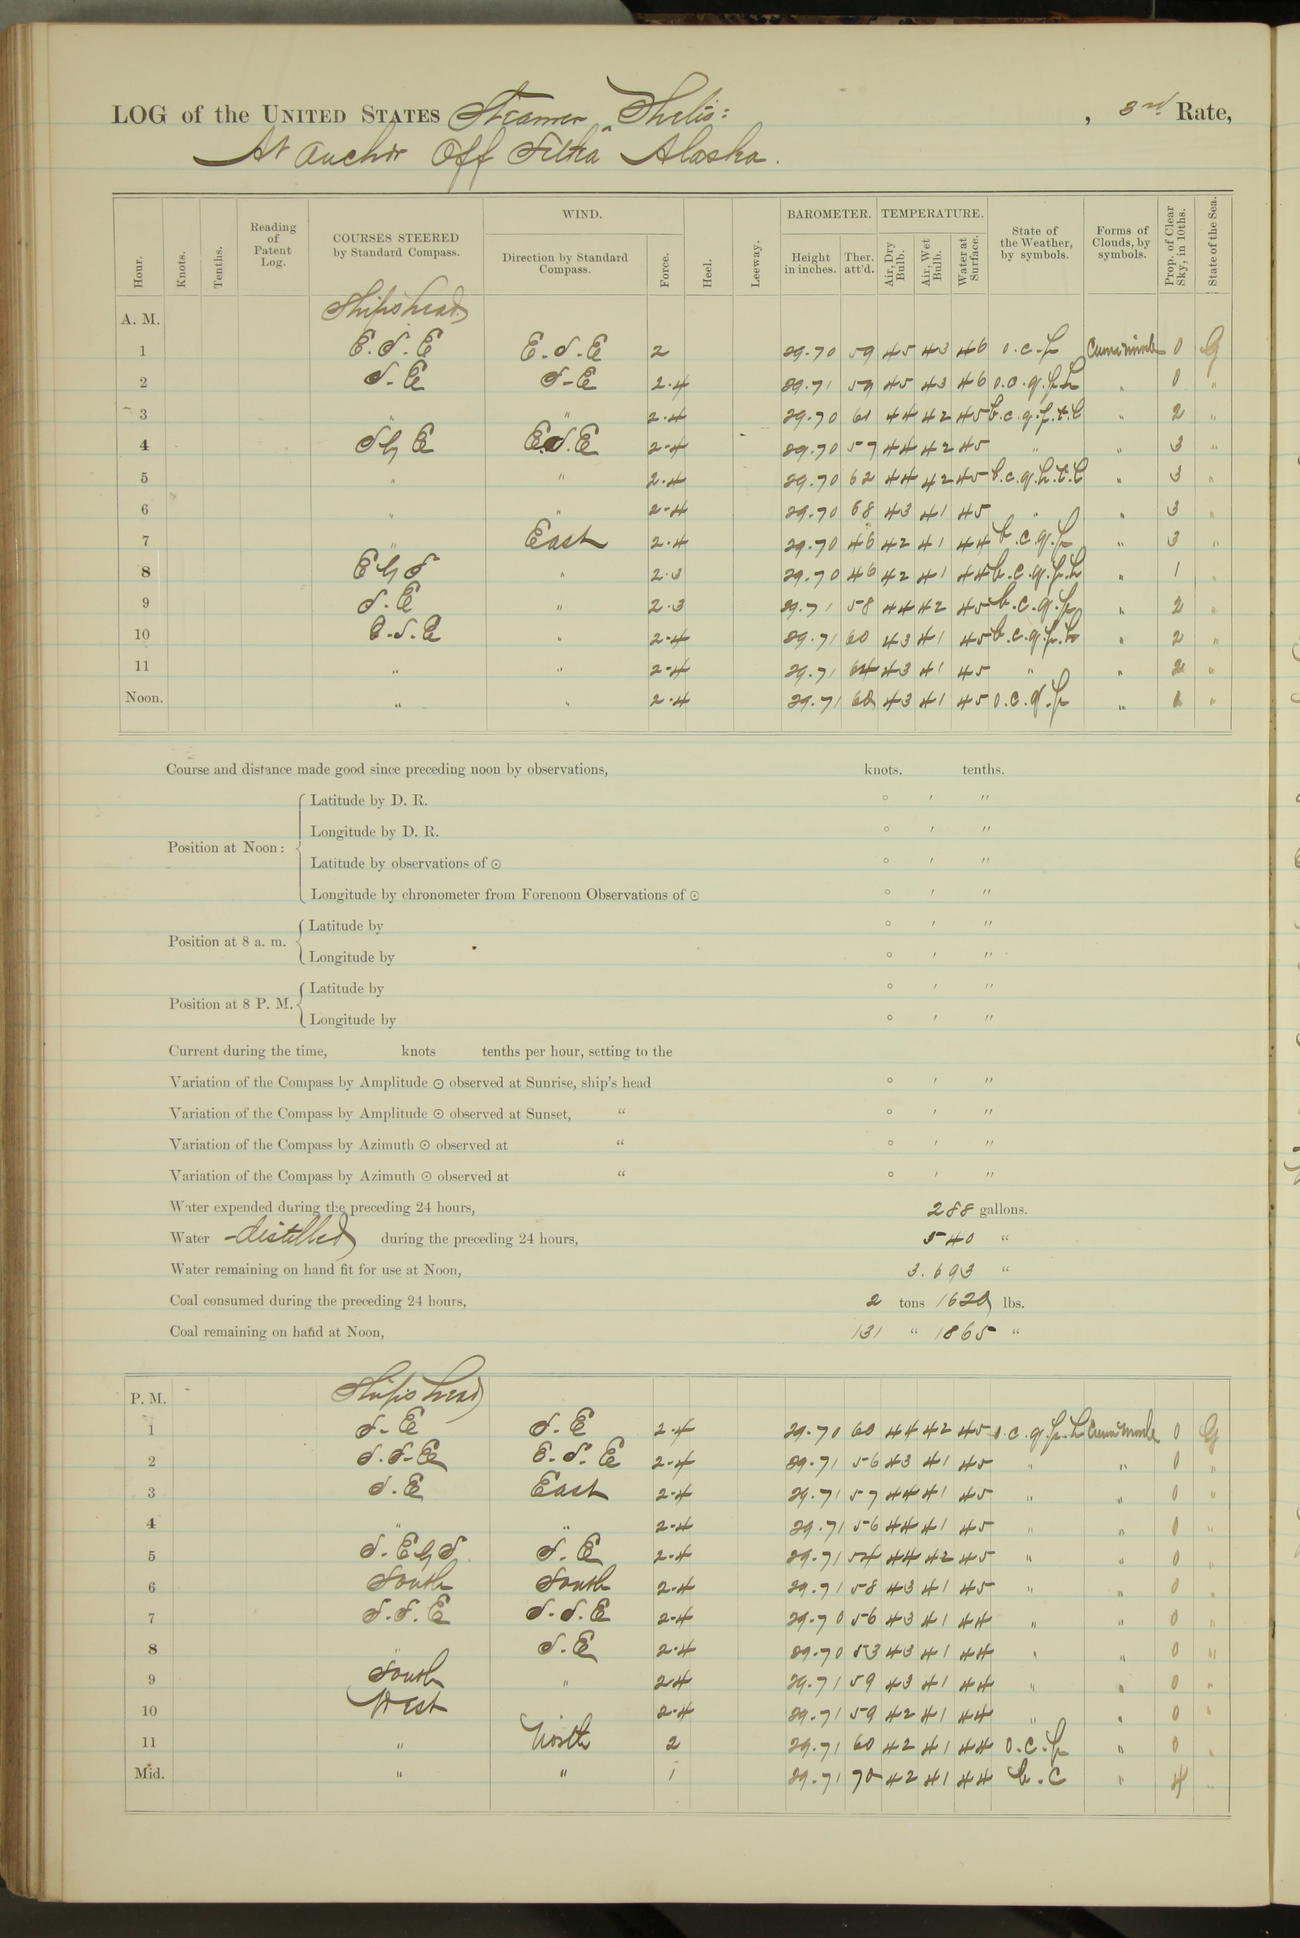 LOG of the UNITED STATES Steamer Thetis: , 3rd Rate,
At anchor Off Sitka Alaska.
Hour. Knots. Tenths. Reading of Patent Log. COURSES STEERED by Standard Compass. WIND. Direction by Standard Compass. Force. Heel. Leeway. BAROMETER. Height in inches. Ther. att'd. TEMPERATURE. Air, Dry Bulb. Air, Wet Bulb. Water at Surface. State of the Weather, by symbols. Forms of Clouds, by symbols. Prop. of Clear Sky, in 10ths. State of the Sea.
A. M. Ships head
1 E.S.E E.S.E 2 29.70 59 45 43 46 o.c.p 0 G
2 S-E S-E 2.4 29.71 59 45 43 46 o.c.q.p.h " 0 "
3 " " 2.4 29.70 61 44 42 45 b.c.q.p.t.l " 2 "
4 S by E E.S.E 2.4 29.70 57 44 42 45 " " 3 "
5 " " 2.4 29.70 62 44 42 45 b.c.q.h.t.l " 3 "
6 " " 2.4 29.70 68 43 41 45 " " 3 "
7 " East 2.4 29.70 46 42 41 44 b.c.q.p " 3 "
8 E by S " 2.3 29.70 46 42 41 44 b.c.q.p.h " 1 "
9 S.E " 2.3 29.71 58 44 42 45 b.c.q.p " 2 "
10 E.S.E " 2.4 29.71 60 43 41 45 b.c.q.p.h " 2 "
11 " " 2.4 29.71 64 43 41 45 " " 2 "
Noon. " " 2.4 29.71 43 41 45 o.c.q.p " "
Course and distance made good since preceding noon by observations, knots. tenths.
Position at Noon:
Latitude by D. R. ° ′ ″
Longitude by D. R. ° ′ ″
Latitude by observations of ☉ ° ′ ″
Longitude by chronometer from Forenoon Observations of ☉ ° ′ ″
Position at 8 a. m.
Latitude by ° ′ ″
Longitude by ° ′ ″
Position at 8 P. M.
Latitude by ° ′ ″
Longitude by ° ′ ″
Current during the time, knots tenths per hour, setting to the
Variation of the Compass by Amplitude ☉ observed at Sunrise, ship's head ° ′ ″
Variation of the Compass by Amplitude ☉ observed at Sunset, " ° ′ ″
Variation of the Compass by Azimuth ☉ observed at " ° ′ ″
Variation of the Compass by Azimuth ☉ observed at " ° ′ ″
Water expended during the preceding 24 hours, 288 gallons.
Water distilled during the preceding 24 hours, 540 "
Water remaining on hand fit for use at Noon, 3.693 "
Coal consumed during the preceding 24 hours, 2 tons 1620 lbs.
Coal remaining on hand at Noon, 131 " 1865 "
P. M. Ships head
1 S-E S.E 2.4 29.70 60 44 42 45 o.c.q.p.h 0 G
2 S.S-E E.S.E 2.4 29.71 56 43 41 45 " " 0 "
3 S.E East 2.4 29.71 57 44 41 45 " " 0 "
4 " " 2.4 29.71 56 44 41 45 " " 0 "
5 S.E by S. S.E 2.4 29.71 54 44 42 45 " " 0 "
6 South South 2.4 29.71 58 43 41 45 " " 0 "
7 S.S.E S.S.E 2.4 29.70 56 43 41 44 " " 0 "
8 " S.E 2.4 29.70 53 43 41 44 " " 0 "
9 South " 2.4 29.71 59 43 41 44 " " 0 "
10 West " 2.4 29.71 59 42 41 44 " " 0 "
11 " North 2 29.71 60 42 41 44 o.c.p " 0 "
Mid. " " 1 29.71 70 42 41 44 b.c " 4 "